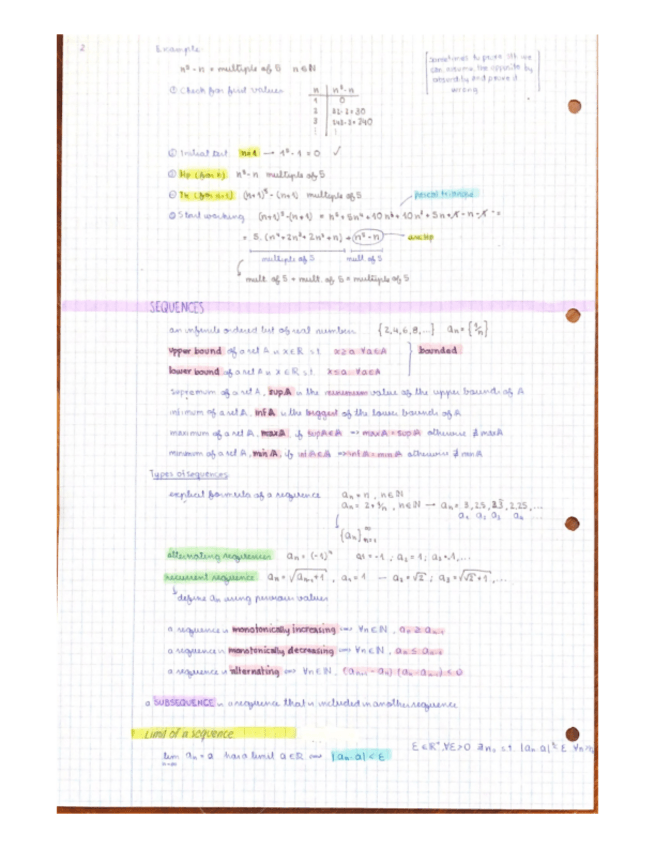 2
Example:
n⁵ - n × multiple of 5 n∈ℕ
sometimes to prove sth we
can assume the opposite by
absurdity and prove it
wrong
① Check for first values
n n⁵-n
1 0
2 32-2=30
3 243-3=240
② Initial test n=1 → 1⁵-1=0 ✓
③ Hp (for n) n⁵-n multiple of 5
④ Th (for n+1) (n+1)⁵-(n+1) multiple of 5
pascal triangle
⑤ Start working (n+1)⁵-(n+1) = n⁵+5n⁴+10n³+10n²+5n+1-n-1 =
= 5·(n⁴+2n³+2n²+n) + (n⁵-n)
multiple of 5 mult. of 5
mult. of 5 + mult. of 5 = multiple of 5
SEQUENCES
an infinite ordered list of real numbers {2,4,6,8,...}
upper bound of a set A is x∈ℝ s.t. x≥a ∀a∈A bounded
lower bound of a set A is x∈ℝ s.t. x≤a ∀a∈A
supremum of a set A, sup A is the value of the upper bounds of A
infimum of a set A, inf A is the biggest of the lower bounds of A
maximum of a set A, max A, if sup A∈A ⇒ max A = sup A otherwise ∄ max A
minimum of a set A, min A, if inf A∈A ⇒ inf A = min A otherwise ∄ min A
Types of sequences
explicit formula of a sequence aₙ = n, n∈ℕ
aₙ = 2+¹/ₙ, n∈ℕ → aₙ = 3, 2.5, 2.3, 2.25, ...
a₁ a₂ a₃ a₄ ...
{aₙ}ₙ₌₁^∞
alternating sequences aₙ = (-1)ⁿ a₁=-1; a₂=1; a₃=-1,...
recurrent sequence aₙ = √(aₙ₋₁+1), a₁=1 → a₂=√2; a₃=√(√2+1),...
define aₙ using previous values
a sequence is monotonically increasing ⟺ ∀n∈ℕ,
a sequence is monotonically decreasing ⟺ ∀n∈ℕ,
a sequence is alternating ⟺ ∀n∈ℕ, (aₙ₊₁-aₙ)(aₙ-aₙ₋₁)≤0
a SUBSEQUENCE is a sequence that is included in another sequence
Limit of a sequence
lim n→∞ aₙ = a has a limit a∈ℝ ⟺ |aₙ-a|<ε
ε∈ℝ⁺, ∀ε>0 ∃n₀ s.t. |aₙ-a|<ε